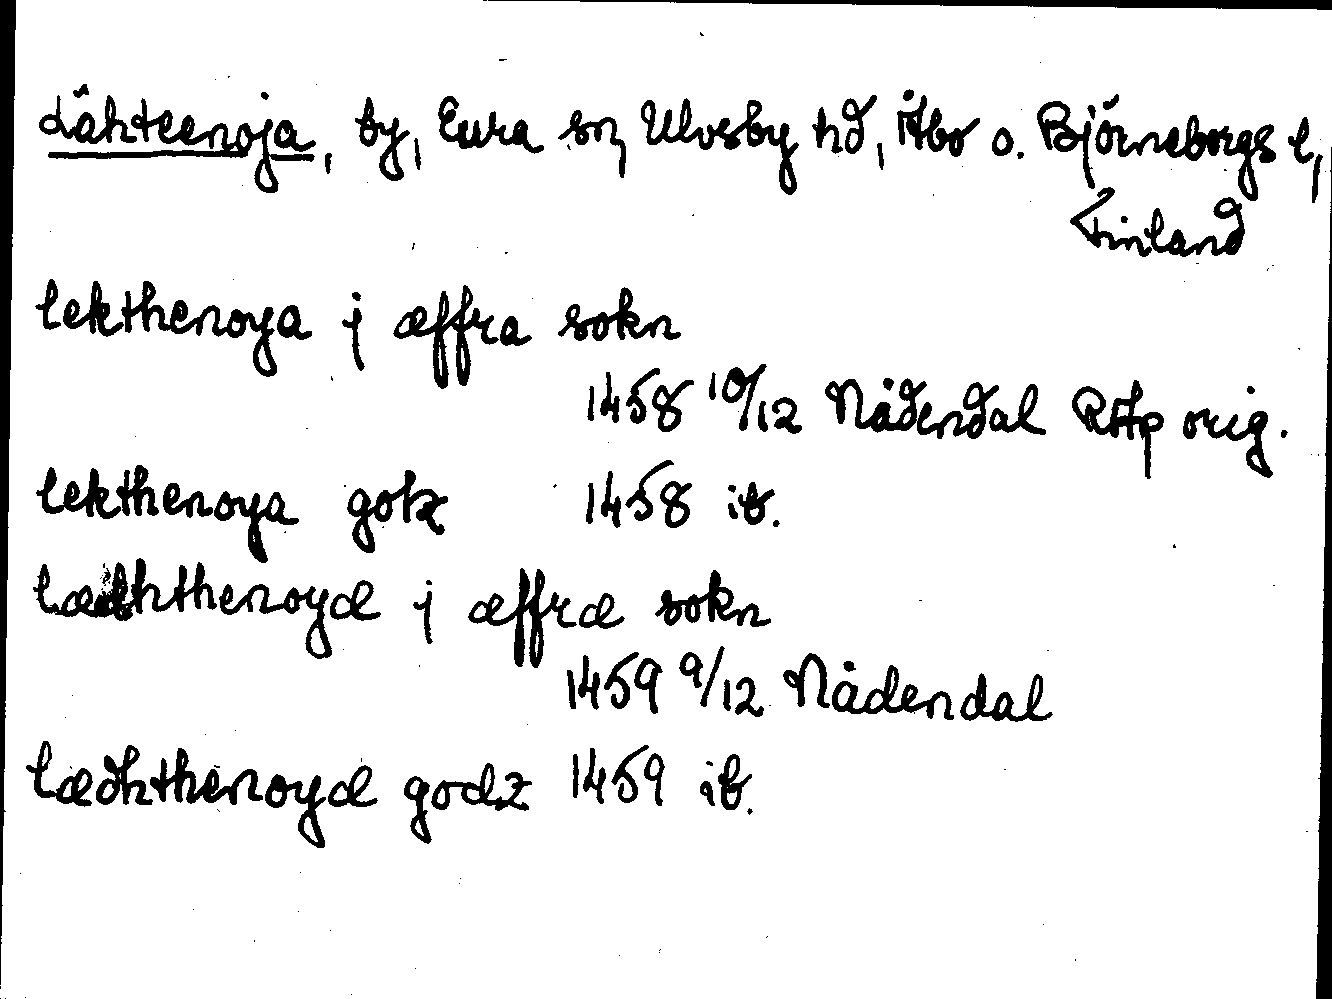 Lähteenoja, by, Eura sn, Ulvsby hd, Åbo o. Björneborgs l,
Finland
lekthenoya j æffra sokn
1458 10/12 Nådendal RAp orig.
lekthenoya gotz 1458 ib.
læchthenoyæ j æffræ sokn
1459 9/12 Nådendal
læchthenoyæ godz 1459 ib.